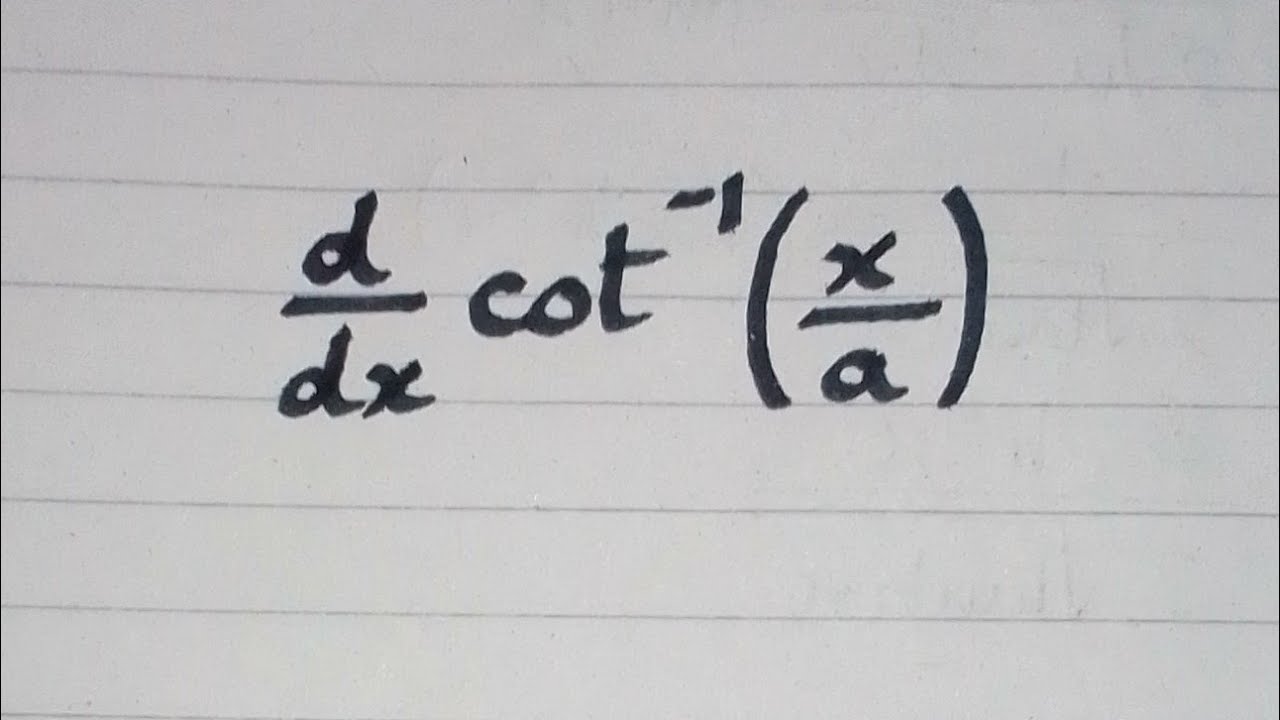 d/dx cot⁻¹(x/a)